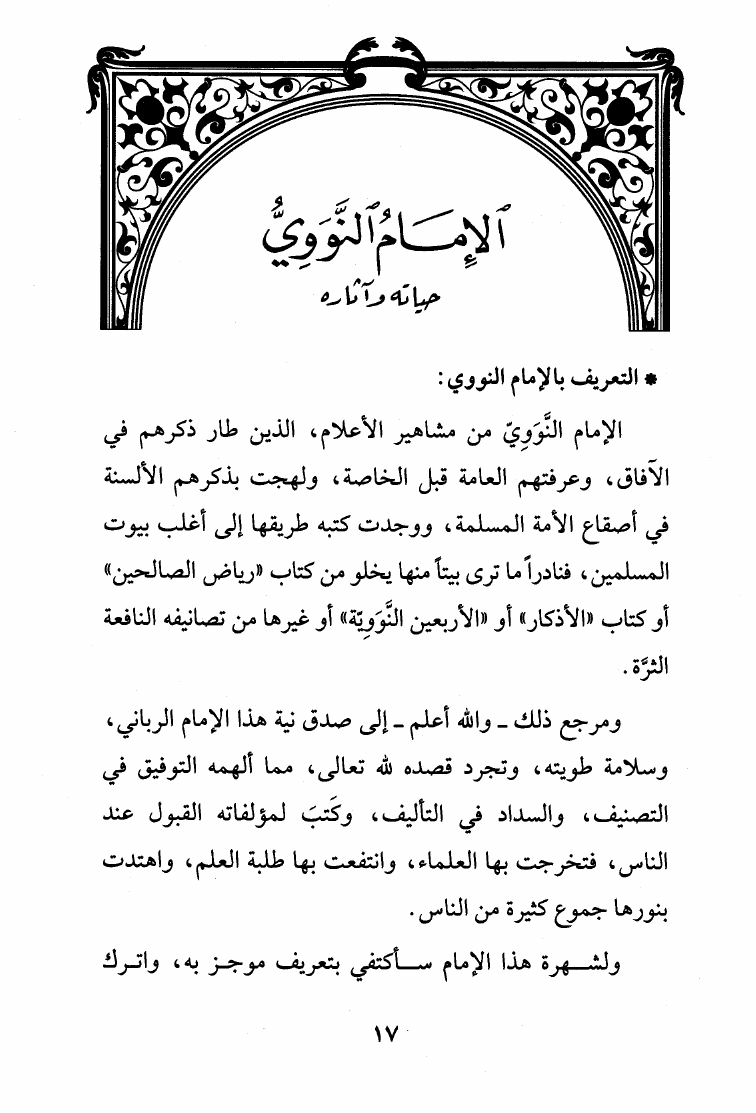 ٱلإِمَامُ ٱلنَّوَوِيُّ
حياته وآثاره
* التعريف بالإمام النووي:
الإمام النَّوَوِيّ من مشاهير الأعلام، الذين طار ذكرهم في
الآفاق، وعرفتهم العامة قبل الخاصة، ولهجت بذكرهم الألسنة
في أصقاع الأمة المسلمة، ووجدت كتبه طريقها إلى أغلب بيوت
المسلمين، فنادراً ما ترى بيتاً منها يخلو من كتاب «رياض الصالحين»
أو كتاب «الأذكار» أو «الأربعين النَّوَوِيّة» أو غيرها من تصانيفه النافعة
الثرَّة.
ومرجع ذلك ـ والله أعلم ـ إلى صدق نية هذا الإمام الرباني،
وسلامة طويته، وتجرد قصده لله تعالى، مما ألهمه التوفيق في
التصنيف، والسداد في التأليف، وكَتبَ لمؤلفاته القبول عند
الناس، فتخرجت بها العلماء، وانتفعت بها طلبة العلم، واهتدت
بنورها جموع كثيرة من الناس.
ولشهرة هذا الإمام سأكتفي بتعريف موجز به، واترك
١٧